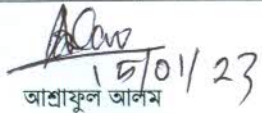 15/01/23
আশ্রাফুল আলম